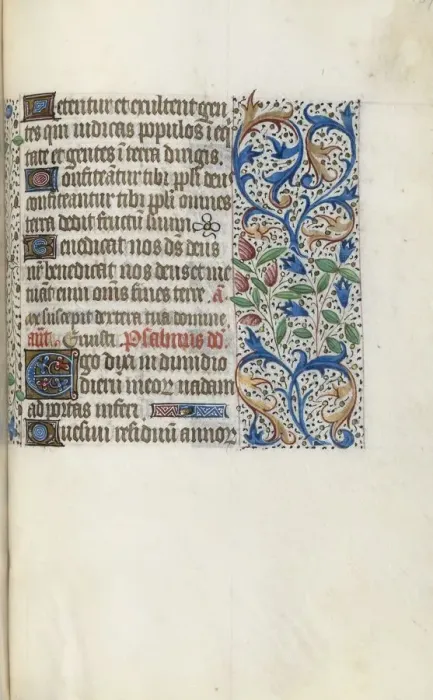 Letentur et exultent gen
tes qm iudicas populos i eq
tate et gentes i terra dirigis.
Confiteātur tibi ppli deus
confiteantur tibi ppli omnes
terra dedit fructū suum
Benedicat nos ds deus
nr̄ benedicat nos deus et me
tuāt eum om̄s fines terre. A.
me suscepit dextera tua domine
ant. Eruisti. Psalmus dd
Ego dixi in dimidio
dierū meor uadam
ad portas inferi
Quesiui residuū annoꝝ